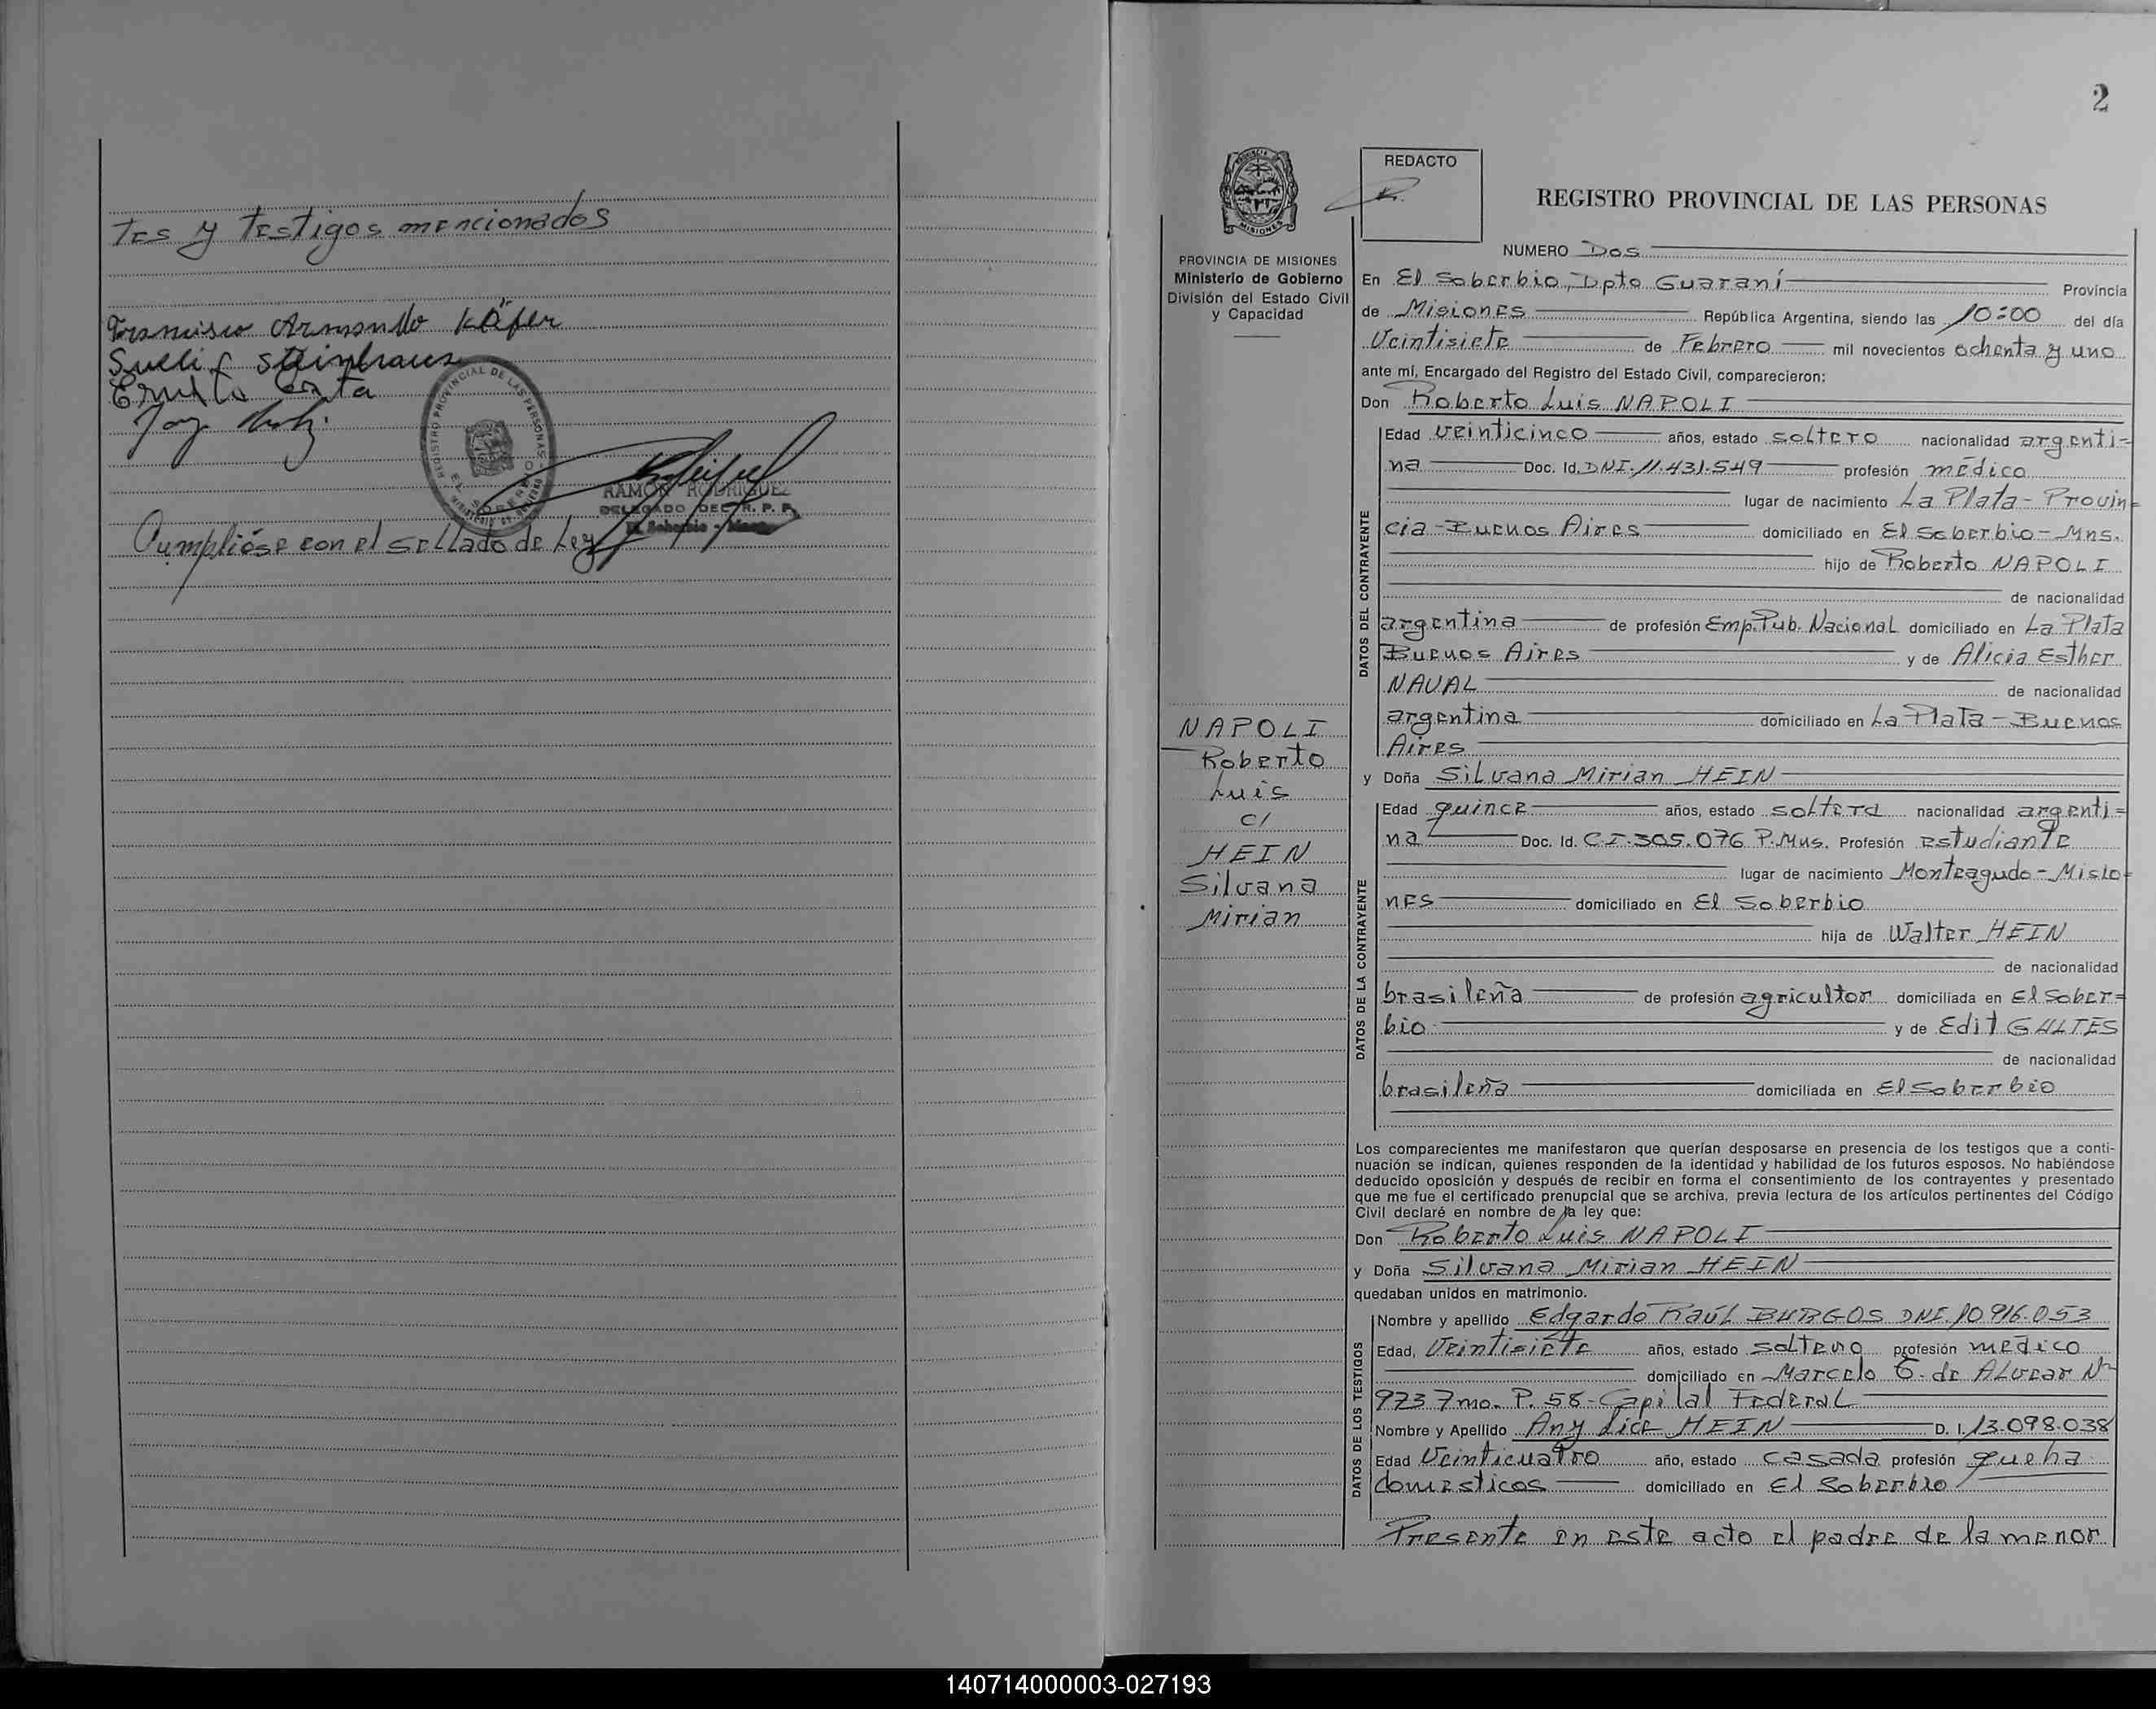 tes y testigos mencionados
Francisco Armando Käfer
Sueli
REGISTRO PROVINCIAL DE LAS PERSONAS
EL SOBERBIO
RAMON RODRIGUEZ
DELEGADO DEL R. P. P.
El Soberbio - Mnes
Cumplióse con el sellado de Ley
2
REDACTO
REGISTRO PROVINCIAL DE LAS PERSONAS
PROVINCIA DE MISIONES
Ministerio de Gobierno
División del Estado Civil
y Capacidad
NUMERO Dos
En El Soberbio, Dpto Guaraní Provincia
de Misiones República Argentina, siendo las 10:00 del día
Veintisiete de Febrero mil novecientos ochenta y uno
ante mí, Encargado del Registro del Estado Civil, comparecieron:
Don Roberto Luis NAPOLI
DATOS DEL CONTRAYENTE
Edad veinticinco años, estado soltero nacionalidad argenti-
na Doc. Id. DNI. 11.431.549 profesión médico
lugar de nacimiento La Plata - Provin=
cia - Buenos Aires domiciliado en El Soberbio - Mns.
hijo de Roberto NAPOLI
de nacionalidad
argentina de profesión Emp. Pub. Nacional domiciliado en La Plata
Buenos Aires y de Alicia Esther
NAVAL de nacionalidad
argentina domiciliado en La Plata - Buenos
Aires
NAPOLI
Roberto
Luis
c/
HEIN
Silvana
Mirian
y Doña Silvana Mirian HEIN
DATOS DE LA CONTRAYENTE
Edad quince años, estado soltera nacionalidad argenti=
na Doc. Id. C.I. 305.076 P. Mns. Profesión estudiante
lugar de nacimiento Monteagudo - Misio=
nes domiciliado en El Soberbio
hija de Walter HEIN
de nacionalidad
brasileña de profesión agricultor domiciliada en El Sober=
bio y de Edit GULTES
de nacionalidad
brasileña domiciliada en El Soberbio
Los comparecientes me manifestaron que querían desposarse en presencia de los testigos que a conti-
nuación se indican, quienes responden de la identidad y habilidad de los futuros esposos. No habiéndose
deducido oposición y después de recibir en forma el consentimiento de los contrayentes y presentado
que me fue el certificado prenupcial que se archiva, previa lectura de los artículos pertinentes del Código
Civil declaré en nombre de la ley que:
Don Roberto Luis NAPOLI
y Doña Silvana Mirian HEIN
quedaban unidos en matrimonio.
DATOS DE LOS TESTIGOS
Nombre y apellido Edgardo Raúl BURGOS DNI. 10.916.053
Edad, Veintisiete años, estado soltero profesión médico
domiciliado en Marcelo T. de Alvear Nº
973 7mo. P. 58 - Capital Federal
Nombre y Apellido Any Lice HEIN D. I. 13.098.038
Edad Veinticuatro año, estado casada profesión queha.
domesticos domiciliado en El Soberbio
Presente en este acto el padre de la menor
140714000003-027193